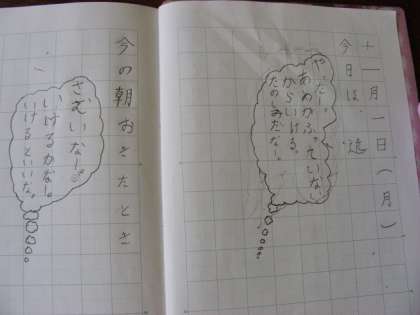 十一月一日(月)
今日は、遠
やったー!
あめがふってない
からいける。
たのしみだなー。
今の朝おきたとき
さむいなー。
いけるかなー。
いけるといいな。